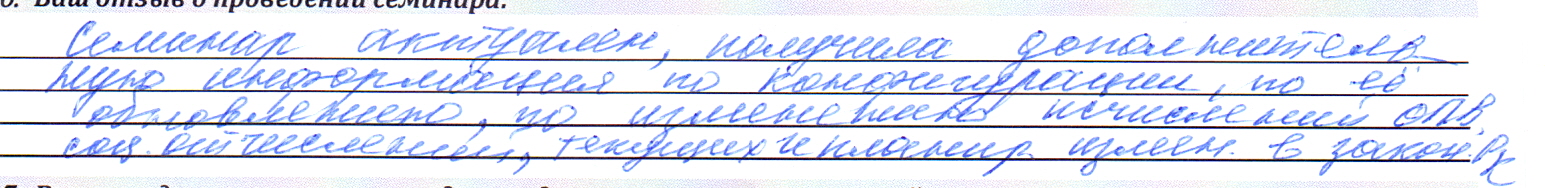 6. Ваш отзыв о проведении семинара:
Семинар актуален, получила дополнитель
ную информация по конфигурации, по её
обновлению, по изменению исчислений ОПВ,
соц. отчислений, текущих и планир измен. в закон. РК